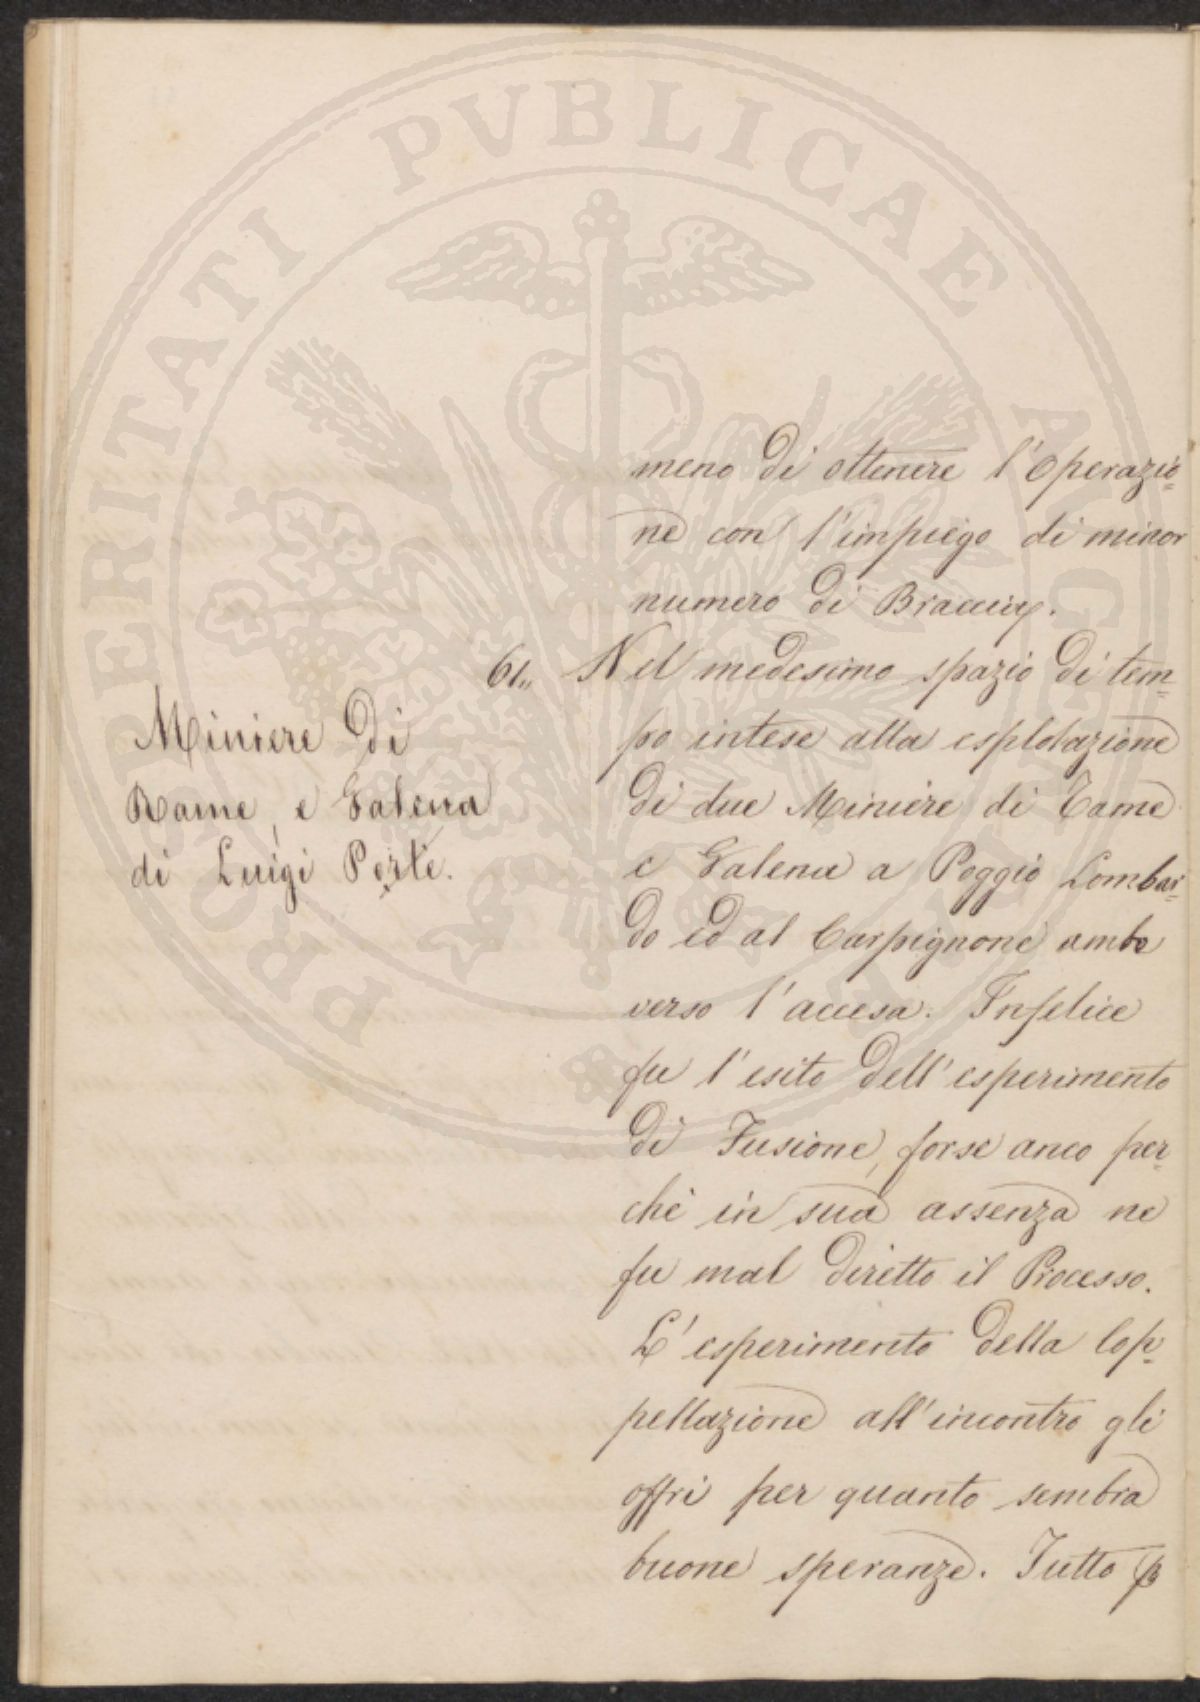 PROSPERITATI PVBLICAE AVGENDAE
meno di ottenere l'Operazio=
ne con l'impiego di minor
numero di Braccia.
61,, Nel medesimo spazio di tem=
Miniere di
Rame, e Galena
di Luigi Porte.
po intese alla esplotazione
di due Miniere di Rame
e Galena a Poggio Lombar=
do ed al Carpignone ambe
verso l'accesa. Infelice
fu l'esito dell'esperimento
di Fusione, forse anco per=
chè in sua assenza ne
fu mal diretto il Processo.
L'esperimento della Cop=
pellazione all'incontro gli
offri per quanto sembra
buone speranze. Tutto